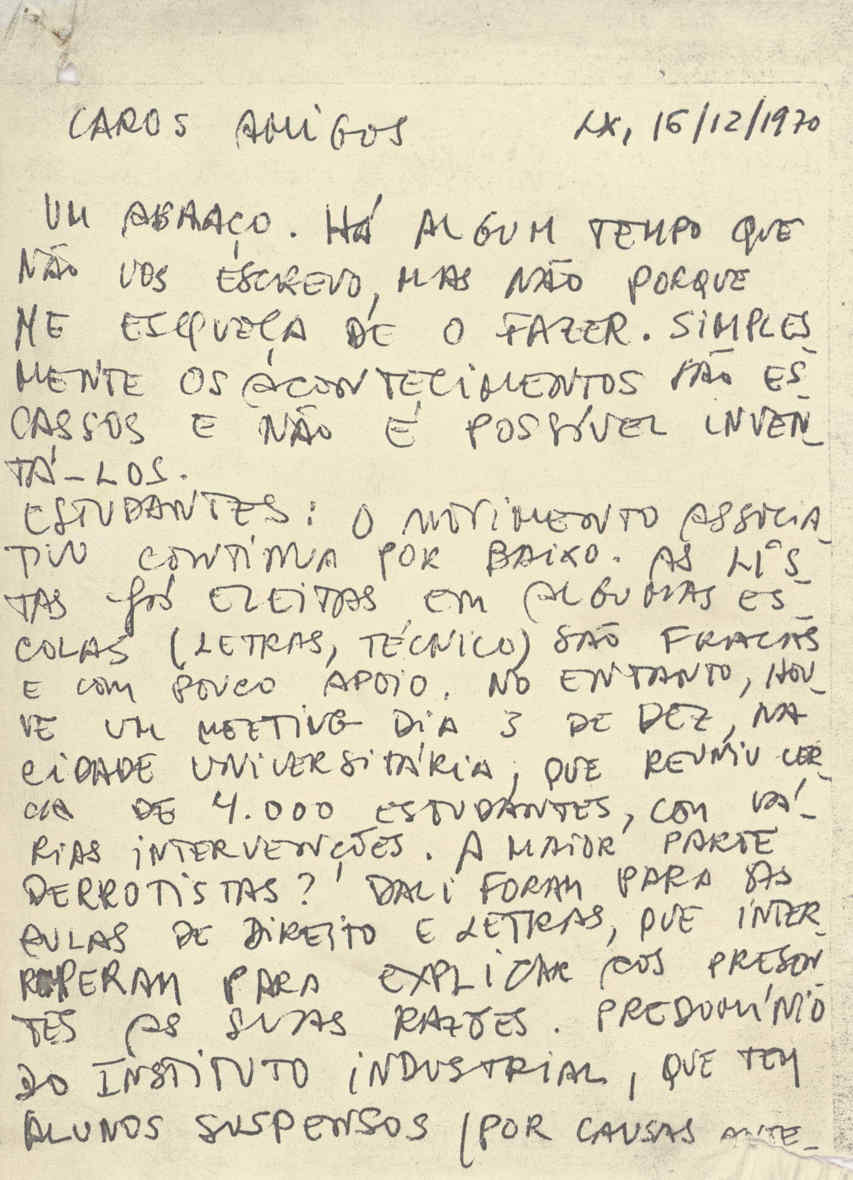 CAROS AMIGOS LX, 16/12/1970
UM ABRAÇO. HÁ ALGUM TEMPO QUE
NÃO VOS ESCREVO, MAS NÃO PORQUE
ME ESQUEÇA DE O FAZER. SIMPLES_
MENTE OS ACONTECIMENTOS SÃO ES_
CASSOS E NÃO É POSSÍVEL INVEN_
TÁ-LOS.
ESTUDANTES: O MOVIMENTO ASSOCIA_
TIVO CONTINUA POR BAIXO. AS LIS_
TAS JÁ ELEITAS EM ALGUMAS ES_
COLAS (LETRAS, TÉCNICO) SÃO FRACAS
E COM POUCO APOIO. NO ENTANTO, HOU_
VE UM MEETING DIA 3 DE DEZ, NA
CIDADE UNIVERSITÁRIA, QUE REUNIU CER_
CA DE 4.000 ESTUDANTES, COM VÁ_
RIAS INTERVENÇÕES. A MAIOR PARTE
DERROTISTAS? DALI FORAM PARA AS
AULAS DE DIREITO E LETRAS, QUE INTER_
ROMPERAM PARA EXPLICAR AOS PRESEN_
TES AS SUAS RAZÕES. PREDOMÍNIO
DO INSTITUTO INDUSTRIAL, QUE TEM
ALUNOS SUSPENSOS (POR CAUSAS ANTE_